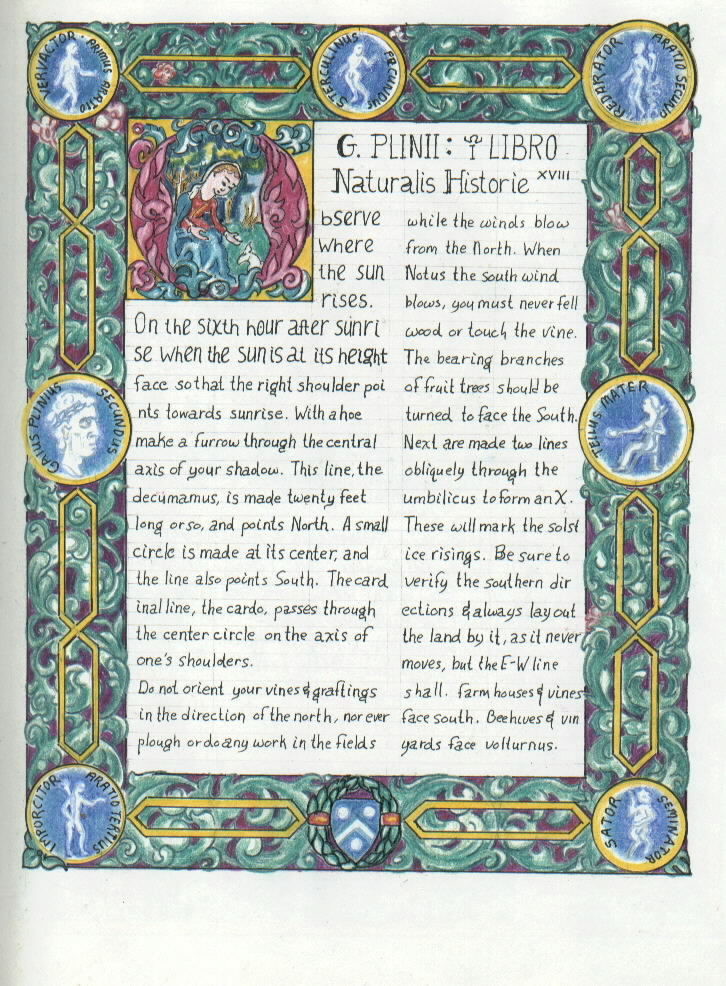 VERVACTOR · PRIMUS ARATIO
STERCULINUS
REPARATOR ARATIO SECUND
G. PLINII: LIBRO
Naturalis Historie XVIII
Observe
where
the sun
rises.
On the sixth hour after sunri
se when the sun is at its height
face so that the right shoulder poi
nts towards sunrise. With a hoe
make a furrow through the central
axis of your shadow. This line, the
decumamus, is made twenty feet
long or so, and points North. A small
circle is made at its center, and
the line also points South. The card
inal line, the cardo, passes through
the center circle on the axis of
one's shoulders.
Do not orient your vines & graftings
in the direction of the north, nor ever
plough or do any work in the fields
while the winds blow
from the North. When
Notus the south wind
blows, you must never fell
wood or touch the vine.
The bearing branches
of fruit trees should be
turned to face the South.
Next are made two lines
obliquely through the
umbilicus to form an X.
These will mark the solst
ice risings. Be sure to
verify the southern dir
ections & always lay out
the land by it, as it never
moves, but the E-W line
shall. Farm houses & vines
face south. Beehives & vin
yards face volturnus.
GAIUS PLINIUS SECUNDUS
TELLUS MATER
IMPORCITOR ARATIO TERTIUS
SATOR SEMINATOR